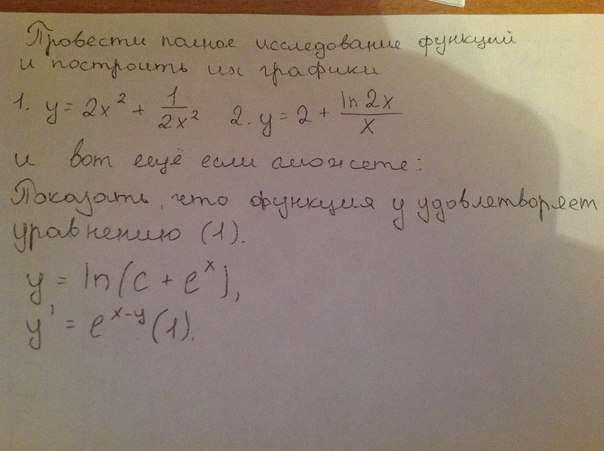 Провести полное исследование функций
и построить их графики
1. y = 2x² + 1/(2x²)   2. y = 2 + ln 2x / x
и вот ещё если сможете:
Показать, что функция y удовлетворяет
уравнению (1).
y = ln(c + eˣ),
y' = eˣ⁻ʸ (1).